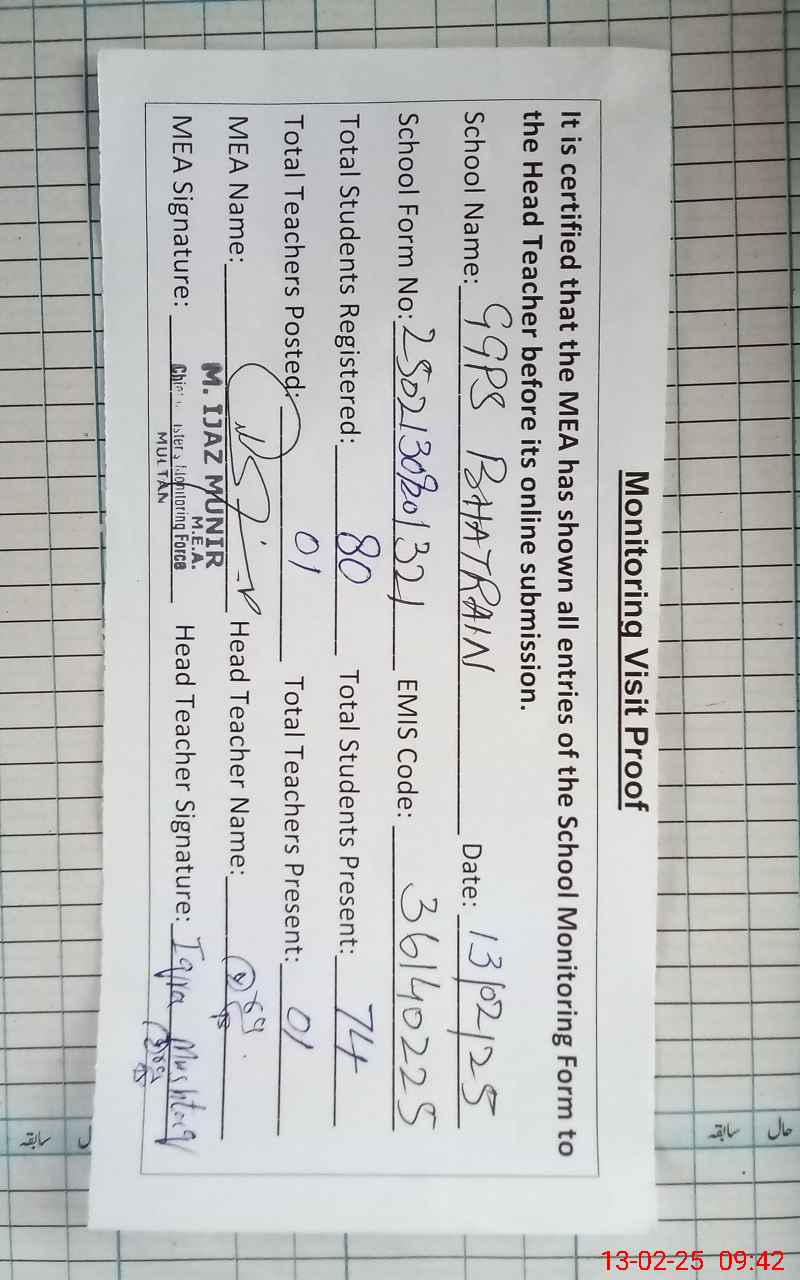 Monitoring Visit Proof
It is certified that the MEA has shown all entries of the School Monitoring Form to
the Head Teacher before its online submission.
School Name: GGPS BHATRAIN Date: 13/02/25
School Form No: EMIS Code: 36140225
Total Students Registered: 80 Total Students Present: 74
Total Teachers Posted: 01 Total Teachers Present: 01
MEA Name: Head Teacher Name:
M. IJAZ MUNIR
M.E.A.
MEA Signature: Head Teacher Signature: Iqra Mushtaq
Monitoring Force
MULTAN
حال سابقہ
سابقہ
13-02-25 09:42